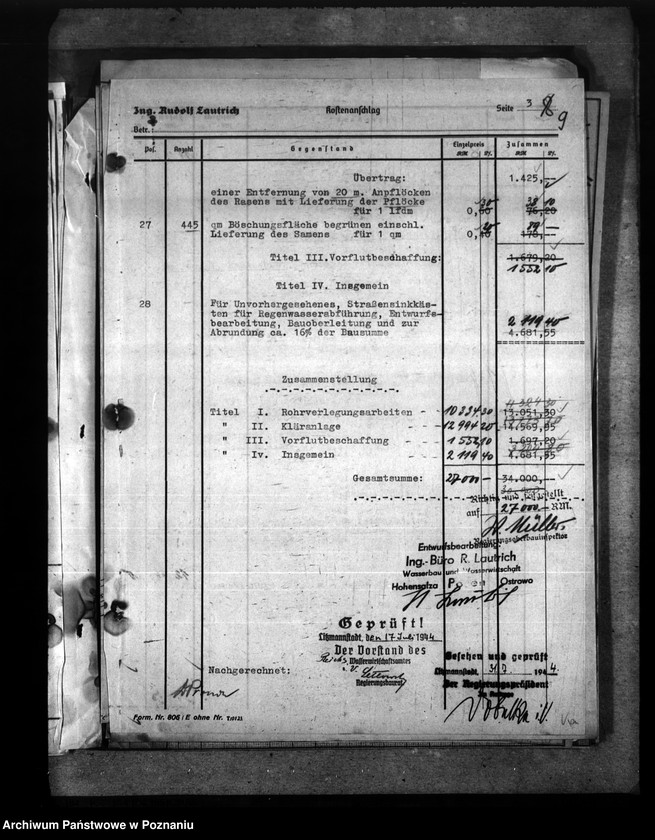 Ing. Rudolf Lautrich Kostenanschlag Seite 3 9
Betr.:
Pos. Anzahl Gegenstand Einzelpreis Zusammen
RM Pf. RM Pf.
Übertrag: 1.425,—
einer Entfernung von 20 m. Anpflöcken
des Rasens mit Lieferung der Pflöcke 30 38 10
für 1 lfdm 0,60 76,20
27 445 qm Böschungsfläche begrünen einschl. 20 89 —
Lieferung des Samens für 1 qm 0,40 178,—
Titel III.Vorflutbeschaffung: 1.679,20
1552 10
Titel IV. Insgemein
28 Für Unvorhergesehenes, Straßensinkkäs-
ten für Regenwasserabführung, Entwurfs-
bearbeitung, Bauoberleitung und zur 2119 40
Abrundung ca. 16% der Bausumme 4.681,55
Zusammenstellung
Titel I. Rohrverlegungsarbeiten - - 10334 30 13.051,30
" II. Kläranlage - - 12994 20 14.569,95
" III. Vorflutbeschaffung - - 1552 10 1.697,20
" Iv. Insgemein - - 2119 40 4.681,55
Gesamtsumme: 27000 — 34.000,—
Richtig und festgestellt
auf 27000.— RM.
W. Müller
Regierungsoberbauinspektor
Entwurfsbearbeitung:
Ing.-Büro R. Lautrich
Wasserbau und Wasserwirtschaft
Hohensalza Posen Ostrowo
Geprüft!
Litzmannstadt, den 17 Juli 1944
Der Vorstand des
Reichs Wasserwirtschaftsamtes
i. V.
Regierungsbaurat
Gesehen und geprüft
Litzmannstadt 1944.
Der Regierungspräsident
Im Auftrage
Nachgerechnet:
Form. Nr. 806/E ohne Nr.
Archiwum Państwowe w Poznaniu